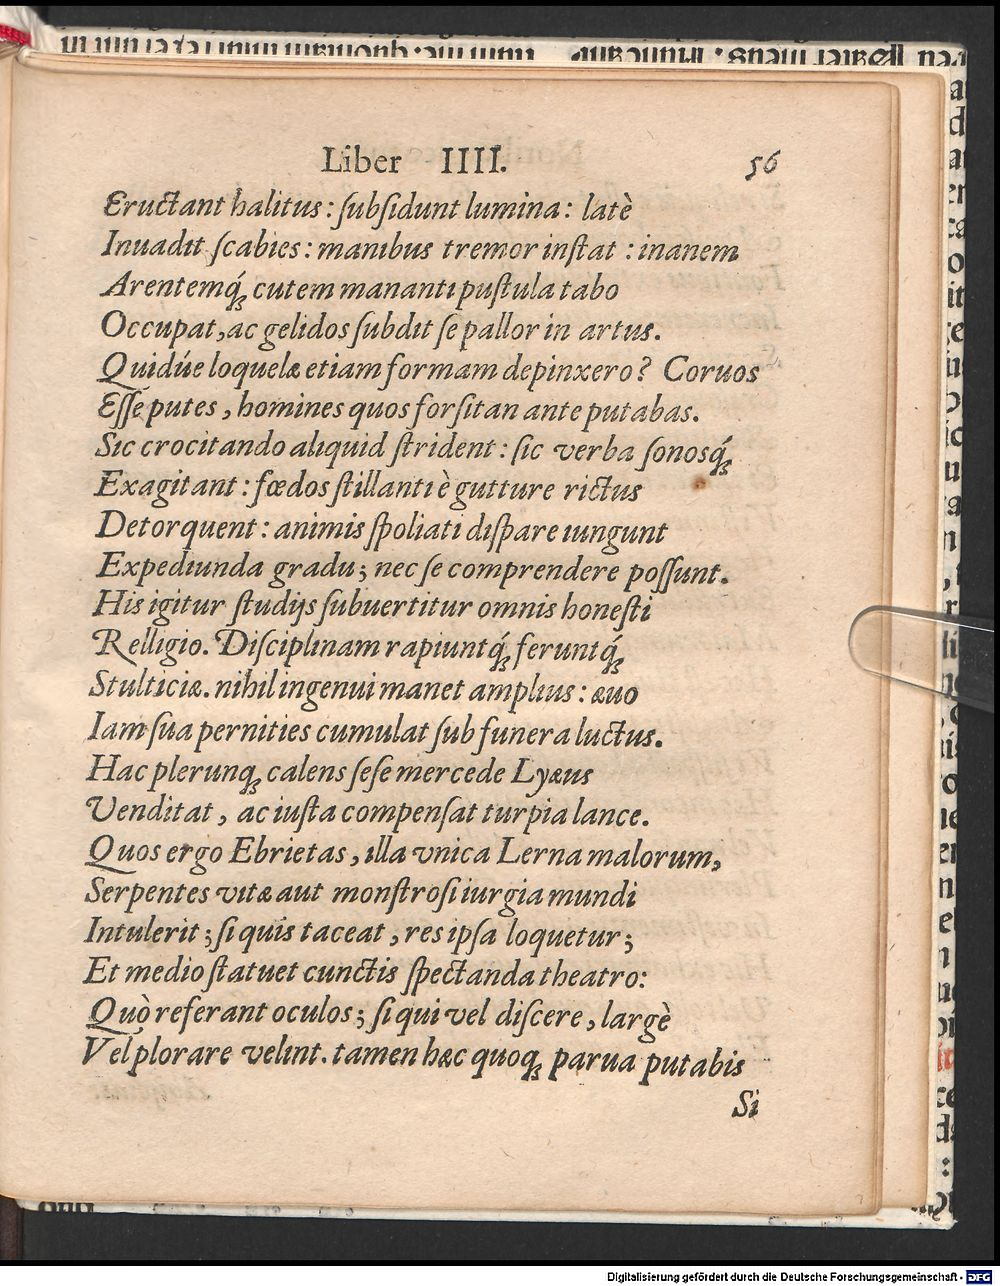 Liber IIII. 56
Eructant halitus: ſubſidunt lumina: latè
Inuadit ſcabies: manibus tremor inſtat: inanem
Arentemq́; cutem mananti puſtula tabo
Occupat, ac gelidos ſubdit ſe pallor in artus.
Quidúe loquelæ etiam formam depinxero? Coruos
Eſſe putes, homines quos forſitan ante putabas.
Sic crocitando aliquid ſtrident: ſic verba ſonosq́;
Exagitant: fœdos ſtillanti è gutture rictus
Detorquent: animis ſpoliati diſpare iungunt
Expediunda gradu; nec ſe comprendere poſſunt.
His igitur ſtudijs ſubuertitur omnis honeſti
Relligio. Diſciplinam rapiuntq́; feruntq́;
Stulticiæ. nihil ingenui manet amplius: æuo
Iam ſua pernities cumulat ſub funera luctus.
Hac plerunq; calens ſeſe mercede Lyæus
Venditat, ac iuſta compenſat turpia lance.
Quos ergo Ebrietas, illa vnica Lerna malorum,
Serpentes vitæ aut monſtroſi iurgia mundi
Intulerit; ſi quis taceat, res ipſa loquetur;
Et medio ſtatuet cunctis ſpectanda theatro:
Quò referant oculos; ſi qui vel diſcere, largè
Vel plorare velint. tamen hæc quoq; parua putabis
Si
Digitalisierung gefördert durch die Deutsche Forschungsgemeinschaft - DFG